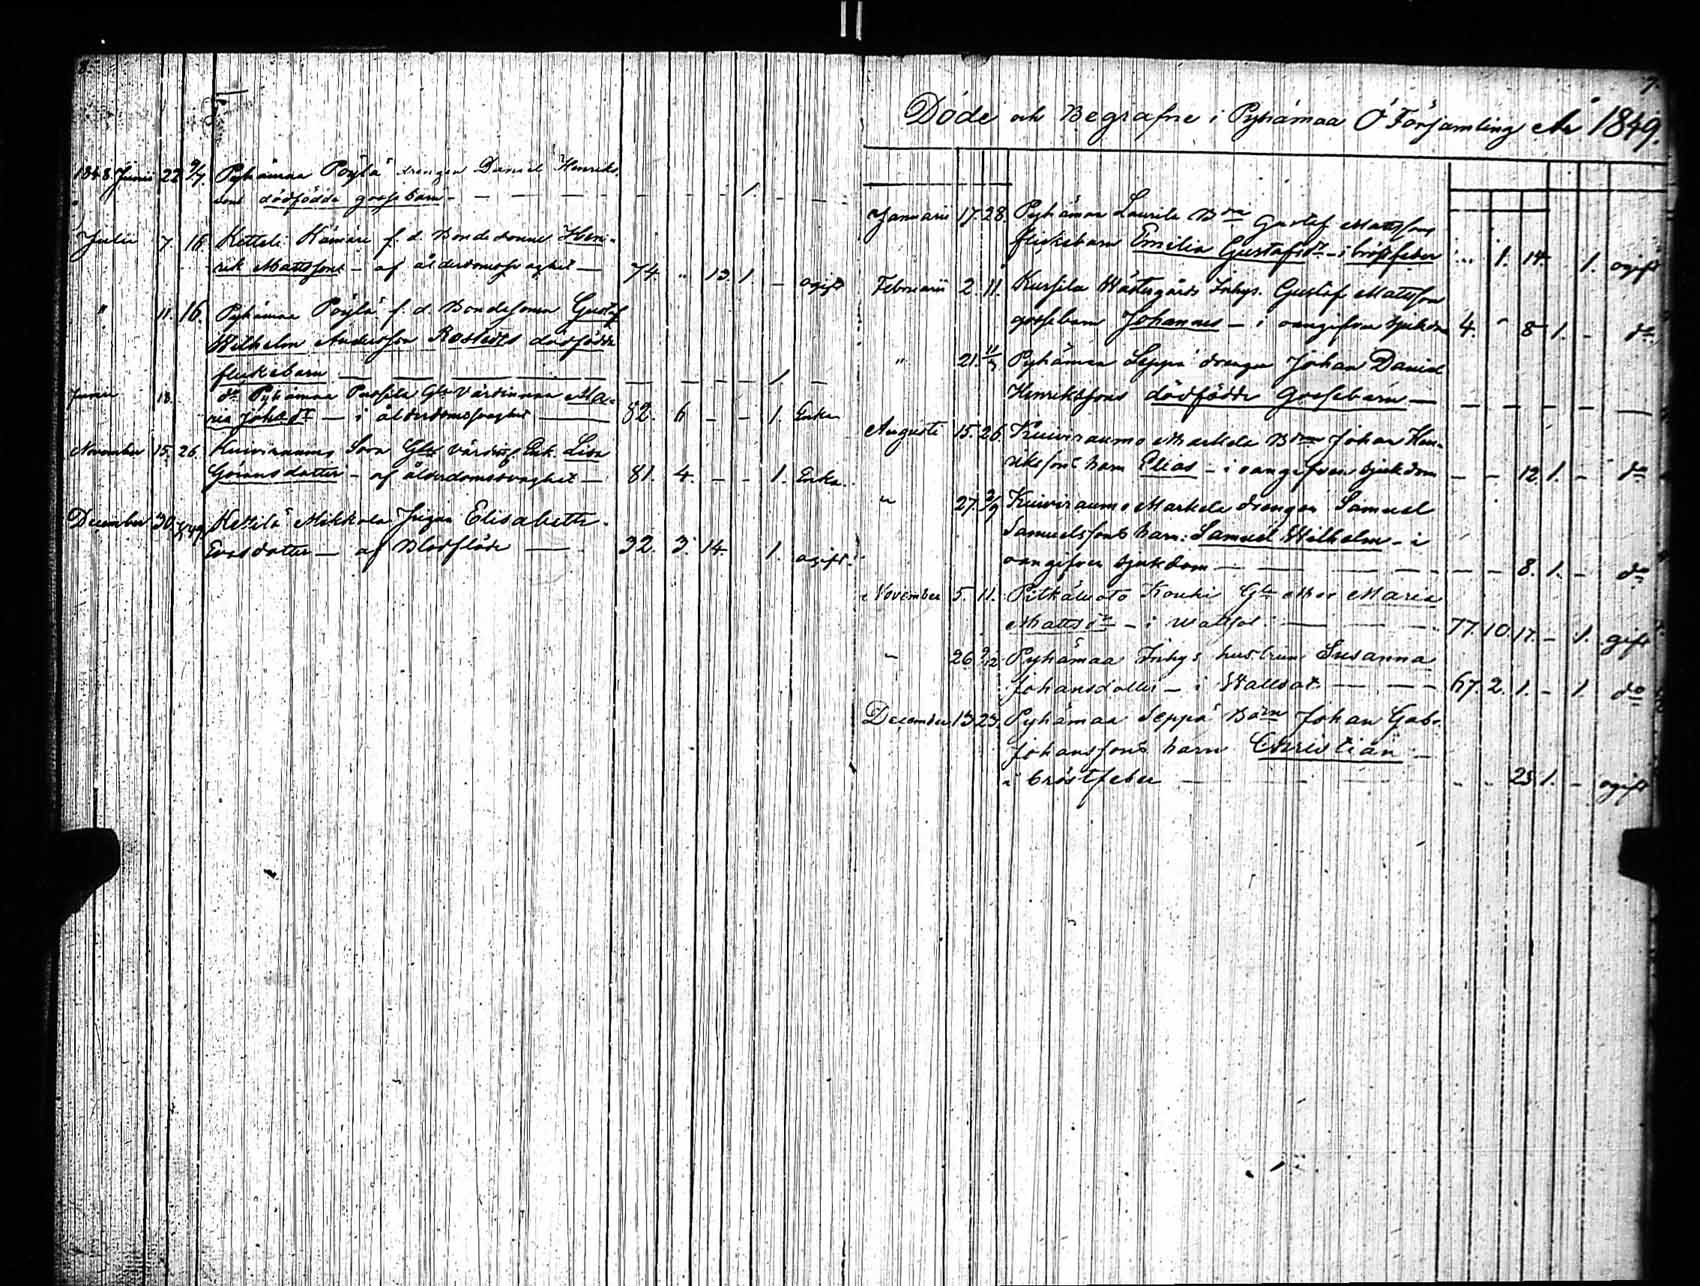 1848 Junii 22 9/7. Pyhämaa Pöylä drengen Daniel Henriks-
sons dödfödde gossebarn - - - - - - - 1. - -
Julii 7. 16. Ketteli Hämäre f. d. Bonde sonne Hen-
rik Mattssons - af ålderdomssvaghet - 74. " 13. 1. - ogift
" 11. 16. Pyhämaa Pöylä f. d. Bondesonen Gustaf
Wilhelm Andersson Rostedts dödfödde
flickebarn - - - - - 1. -
Junii 18. dn Pyhämaa Gla Värdinnan Ma-
ria Johsdr - i ålderdomssvaghet - 82. 6 - - 1. Enka
November 15. 26. Kuiviraumo Sorn Gla Värdin Enk. Lisa
Göransdotter - af ålderdomssvaghet - 81. 4. - - 1. Enka.
December 30. Kettilä Mikkola Pigan Elisabeth
Ersdotter - af Blodflöde - 32. 3. 14. 1. ogift.
7.
Döde och Begrafne i Pyhämaa Ö Församling År 1849.
Januarii 17. 28. Pyhämaa Laurila Bdn Gustaf Mattssons
flickebarn Emilia Gustafsdr - i bröstfeber " 1. 14. 1. ogift
Februarii 2. 11. Kursila Wästergårds Inhys. Gustaf Mattsson
gossebarn Johannes - i oangifven sjukdom 4. - 8 1. - do
" 21. 11/3 Pyhämaa Seppä drengen Johan Daniel
Henrikssons dödfödde Gossebarn - - - - - - -
Augusti 15. 26. Kuiviraumo Markela Bdn Johan Hen-
rikssons barn Elias - i oangifven sjukdom - - 12. 1. - do
" 27. 2/9 Kuiviraumo Markela drengen Samuel
Samuelssons barn: Samuel Wilhelm - i
oangifven sjukdom - - - - - 8. 1. - do
November 5. 11. Pitkäluoto Kouki Gla Mor Maria
Mattsdr - i Wattsot - 77. 10. 17. - 1. gift
" 26. 2/12 Pyhämaa Inhys hustrun Susanna
Johansdotter - i Wattsot - - - 67. 2. 1. - 1. do
December 13. 23. Pyhämaa Seppä Bdn Johan Gab.
Johanssons barn Christian -
i bröstfeber - - - " " 23. 1. - ogift